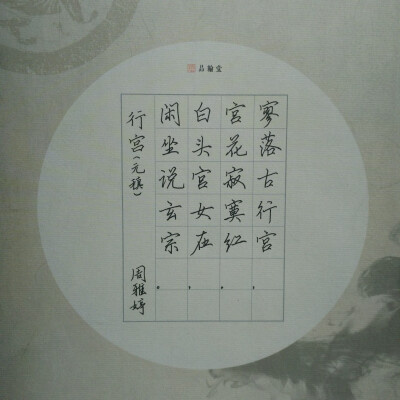 品翰堂
寥落古行宫
宫花寂寞红
白头宫女在
闲坐说玄宗
行宫（元稹）
周雅婷